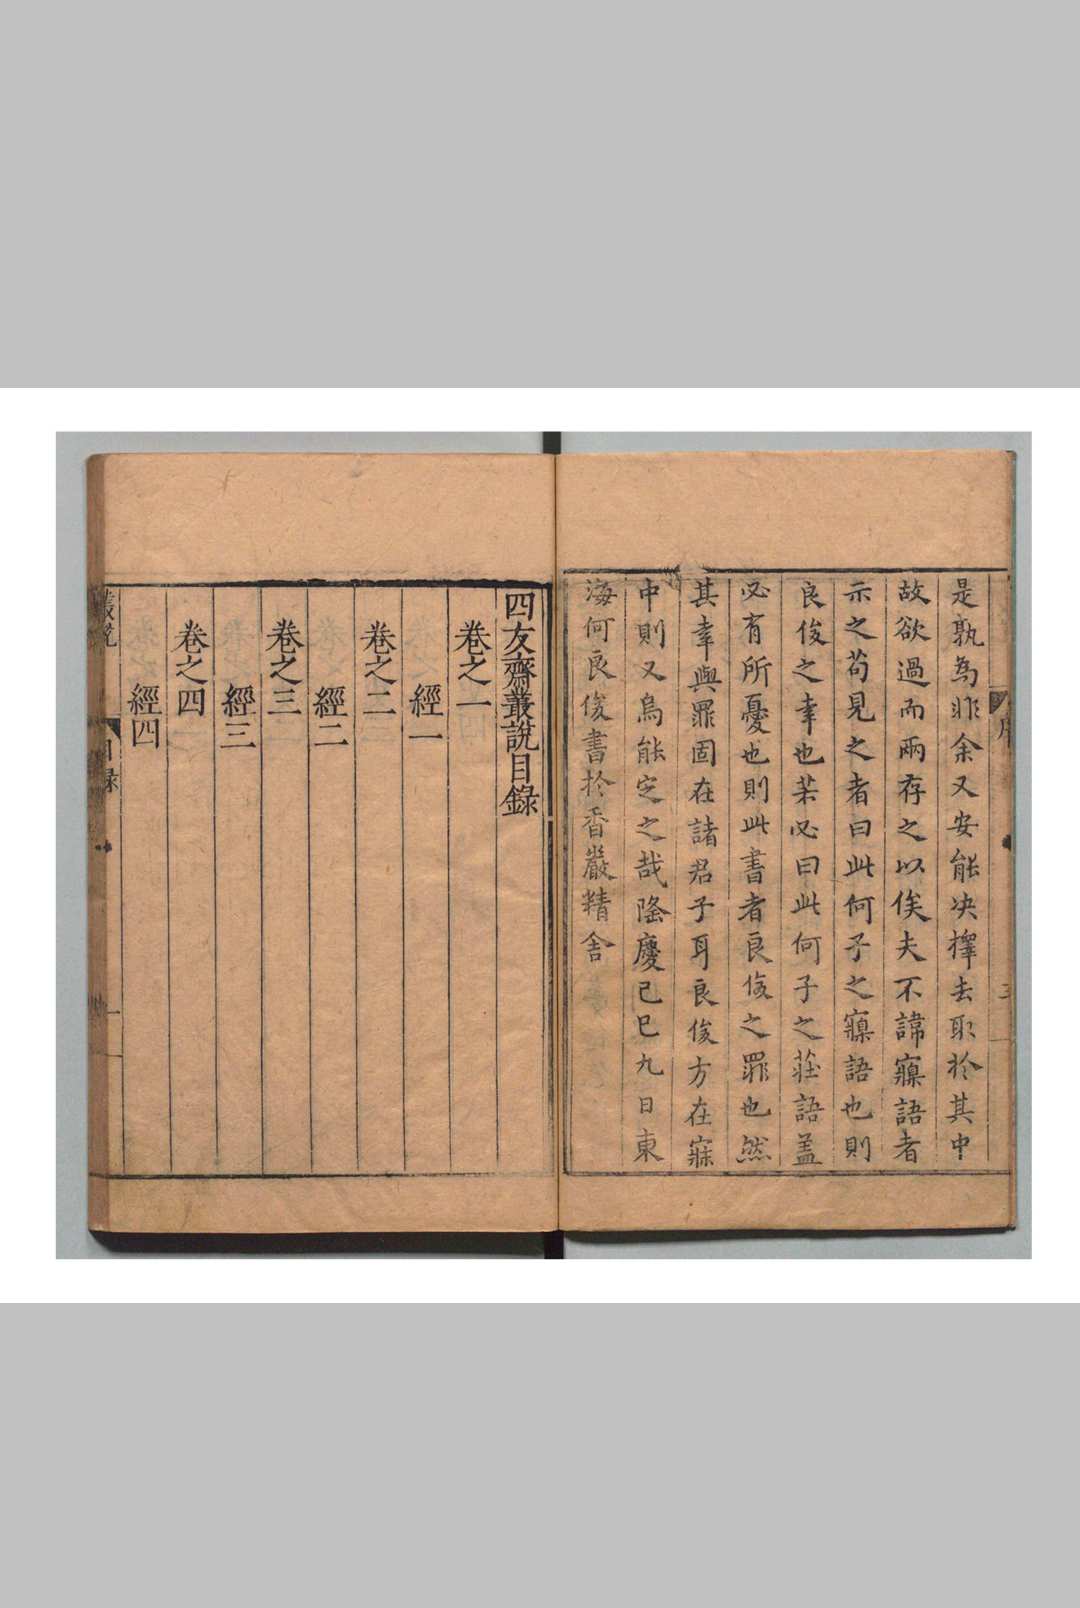 是孰為非余又安能決擇去取於其中
故欲過而兩存之以俟夫不諱㝱語者
示之苟見之者曰此何子之㝱語也則
良俊之幸也若必曰此何子之莊語蓋
必有所憂也則此書者良俊之罪也然
其幸與罪固在諸君子耳良俊方在寐
中則又烏能定之哉隆慶己巳九日東
海何良俊書於香嚴精舍
四友齋叢說目錄
卷之一
經一
卷之二
經二
卷之三
經三
卷之四
經四
叢說
目録
一